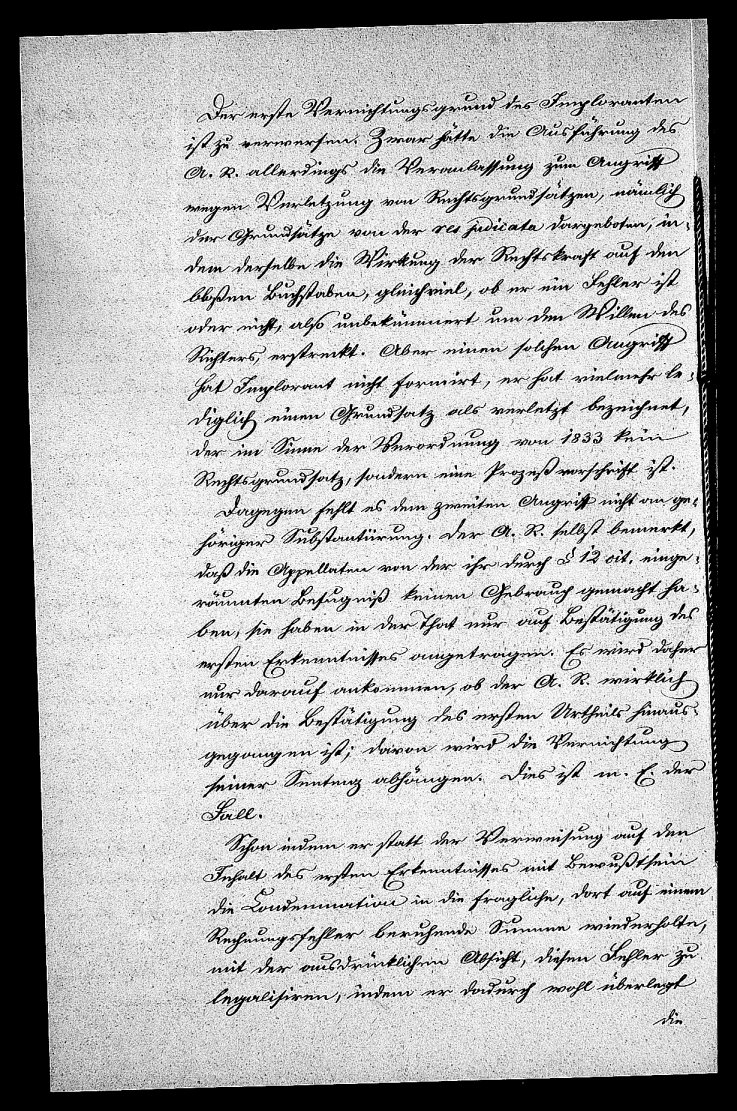 Der erste Vernichtungsgrund des Imploranten
ist zu verwerfen. Zwar hätte die Ausführung des
A. R. allerdings die Veranlassung zum Angriff
wegen Verletzung von Rechtsgrundsätzen, nämlich
der Grundsätze von der res judicata dargeboten, in-
dem derselbe die Wirkung der Rechtskraft auf den
bloßen Buchstaben, gleichviel, ob er ein Fehler ist
oder nicht, also unbekümmert um den Willen des
Richters, erstreckt. Aber einen solchen Angriff
hat Implorant nicht formirt, er hat vielmehr le-
diglich einen Grundsatz als verletzt bezeichnet,
der im Sinne der Verordnung von 1833 kein
Rechtsgrundsatz, sondern eine Prozeßvorschrift ist.
Dagegen fehlt es dem zweiten Angriff nicht an ge-
höriger Substantiirung. Der A. R. selbst bemerkt,
daß die Appellaten von der ihr durch § 12 cit. einge-
räumten Befugniß keinen Gebrauch gemacht ha-
ben, sie haben in der That nur auf Bestätigung des
ersten Erkenntnisses angetragen. Es wird daher
nur darauf ankommen, ob der A. R. wirklich
über die Bestätigung des ersten Urtheils hinaus-
gegangen ist; davon wird die Vernichtung
seiner Sentenz abhängen. Dies ist m. E. der
Fall.
Schon indem er statt der Verweisung auf den
Inhalt des ersten Erkenntnisses mit Bewußtsein
die Condemnation in die fragliche, dort auf einem
Rechnungsfehler beruhende Summe wiederholte,
mit der ausdrücklichen Absicht, diesen Fehler zu
legalisiren, indem er dadurch wohl überlegt
die